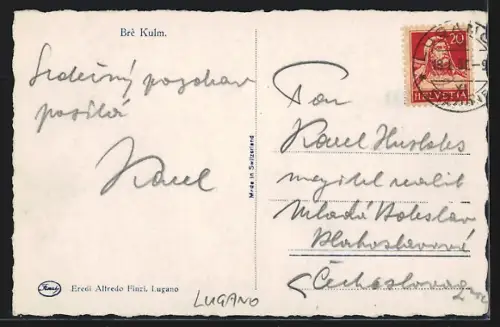 Brè Kulm.
Srdečný pozdrav
posílá
Karel
Made in Switzerland
20
HELVETIA
Pan
Karel
majitel realit
Mladá Boleslav
Blahoslavova
Čechoslovac
Eredi Alfredo Finzi, Lugano
LUGANO